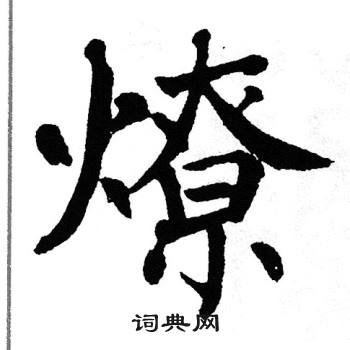 燎
词典网